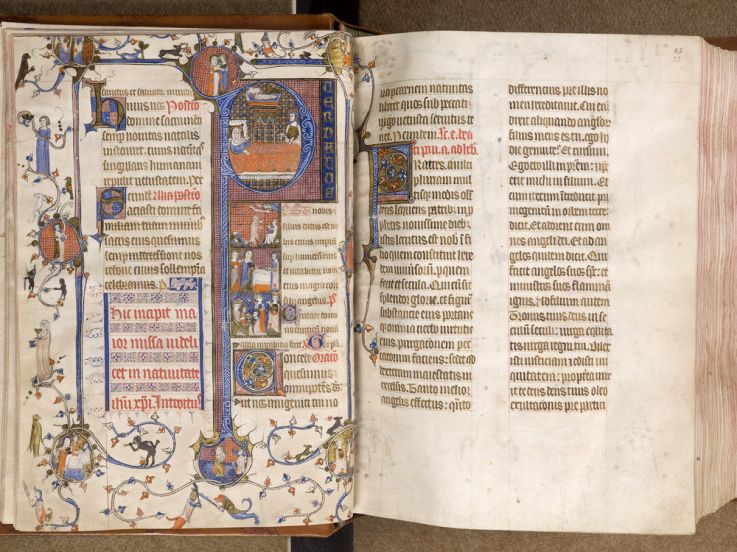 huius nos Postco
domine sacramen
semp novitas natalis
instauret. cuius nativitas
singularis humanam
repulit vetustatem. Per
eundem. Alia postco
aciasti domine fa
miliam tuam muneri
sacris eius quesumus
semp interventione nos
refove cuius sollempnia
celebramus.
Hic incipit ma
ior missa videli
cet in nativitate
ihu xpi. Introitus
P
UER NATUS
nobis
filius datus est no
bis cuius imperi
um
super humerum eius
et vocabitur nomen
eius magni con
silii angelus. P
Cantate domi
no canticum novum
quia mirabilia fecit
Concede Oracio
quesumus
omnipotens ds
ut nos unigeniti tui no
va p carnem nativitas
liberet quos sub peccati
iugo vetusta servitus te
net. P eundem. Lc. e. bea
ti pauli. a. ad heb.
Fratres. Multi
phariam mul
tisque modis olim
deus loquens patrib in p
phetis novissime dieb
istis locutus est nob i fi
lio quem constituit here
dem universorum. p quem
fecit et secula. Qui cum sit
splendor glorie. et figura
substancie eius portans
q omnia verbo virtutis
sue. purgacionem pec
catorum faciens: sedet ad
dexteram maiestatis in
excelsis. Tanto melior
angelis effectus: quanto
differencius pre illis no
men hereditavit. Cui eni
dixit aliquando anglor
filius meus es tu. ego ho
die genui te. Et rursum.
Ego ero illi in prem: et ip
erit michi in filium. Et
cum iterum introducit pri
mogenitum in orbem terre
dicit. Et adorent eum om
nes angeli dei. Et ad an
gelos quidem dicit. Qui
facit angelos suos sps: et
ministros suos flammam
ignis. ad filium autem
Tronus tuus deus in se
culum seculi: virga equita
tis virga regni tui. Dilex
isti iusticiam et odisti ini
quitatem: propterea unx
it te deus deus tuus oleo
exultacionis pre partici